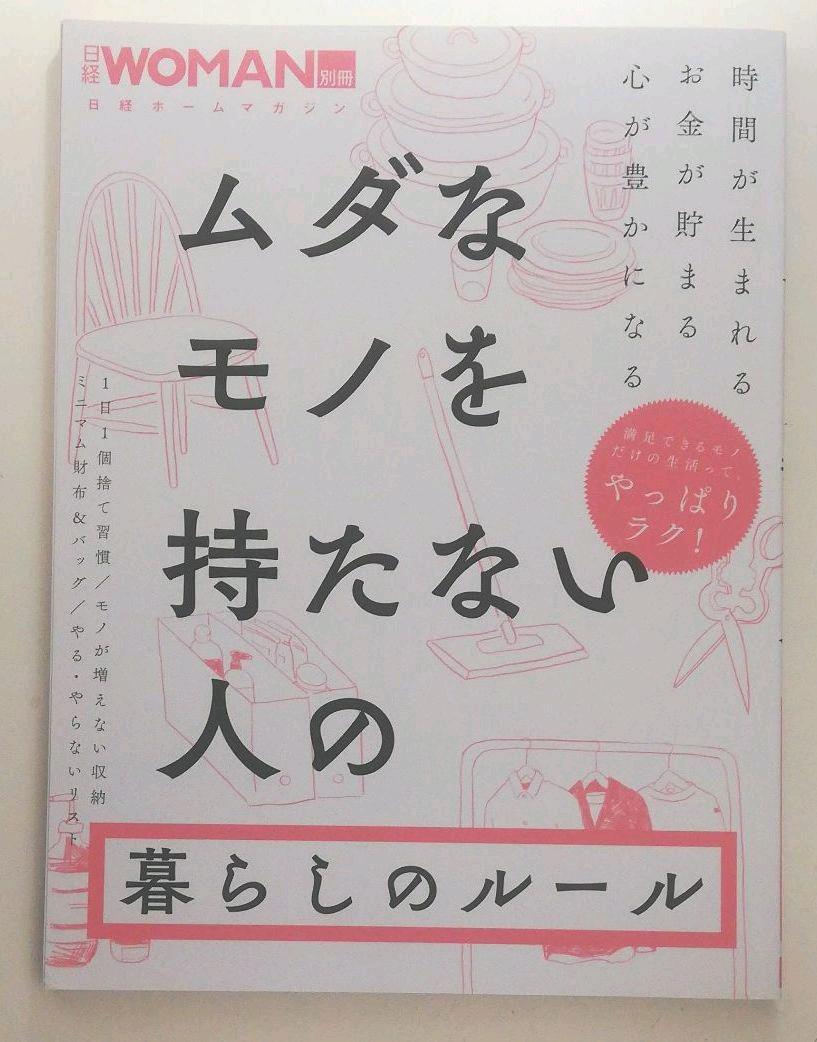 日経WOMAN別冊
日経ホームマガジン
時間が生まれる
お金が貯まる
心が豊かになる
ムダな
モノを
持たない
人の
暮らしのルール
満足できるモノ
だけの生活って、
やっぱり
ラク！
1日1個捨て習慣／モノが増えない収納
ミニマム財布&バッグ／やる・やらないリスト